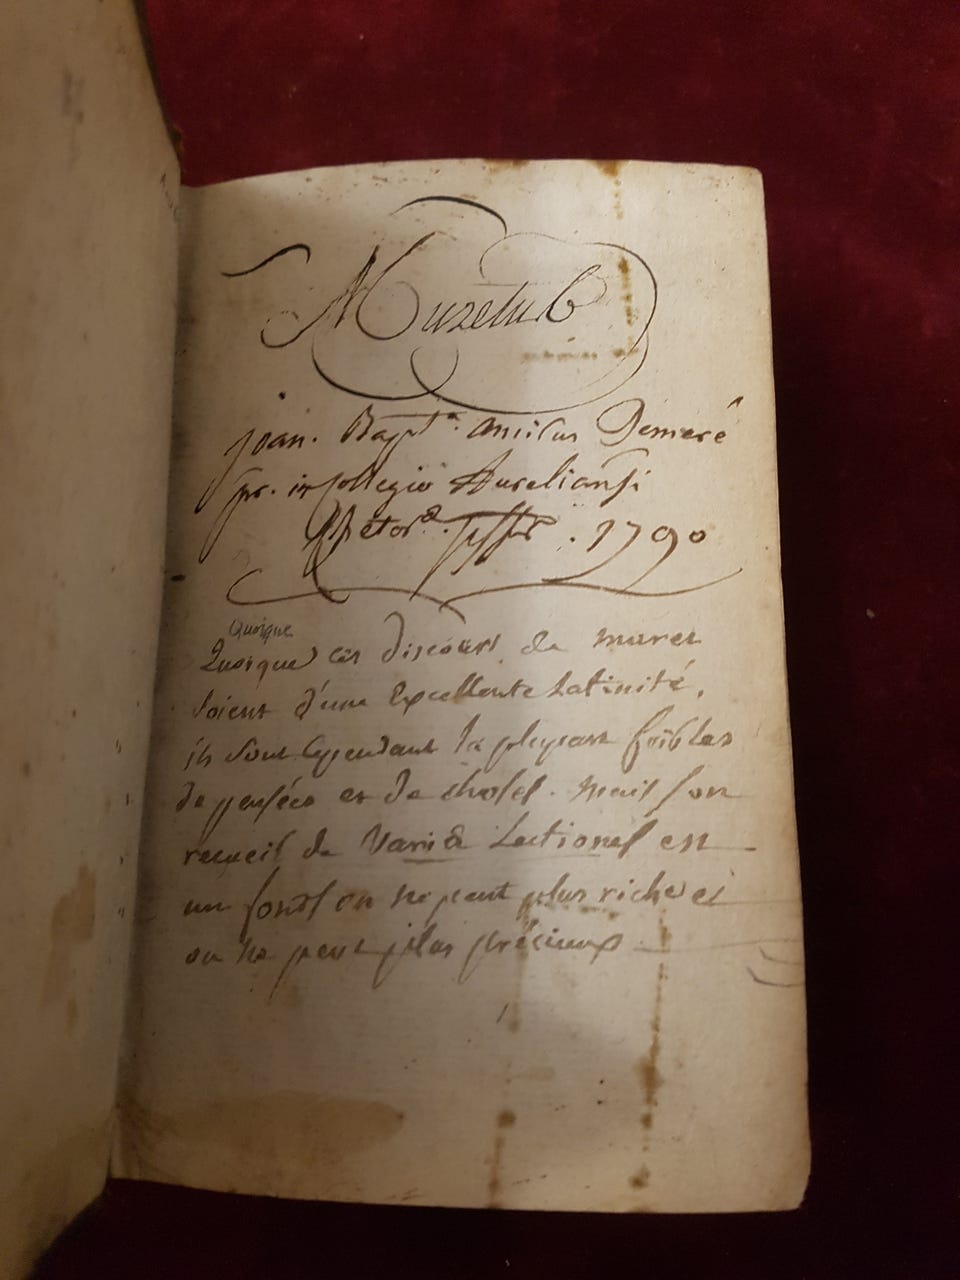 Joan. Bapt.ª Demeré
pr. in Collegio Aureliansi
Rhetor. 1790
Quoique
Quoique ces discours de muret
soient d'une Excellente Latinité,
ils sont Cependant la plupart foibles
de pensées et de choses. mais son
recueil de Variæ Lectiones est
un fonds on ne peut plus riche et
on ne peut plus précieux.